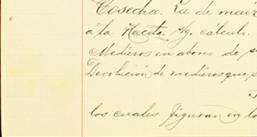 Cosecha. La de maiz
á la Hacda. Ag. calculi
Medieros en abono de p
Devolución de medieros que, p
los cuales figuran en lo